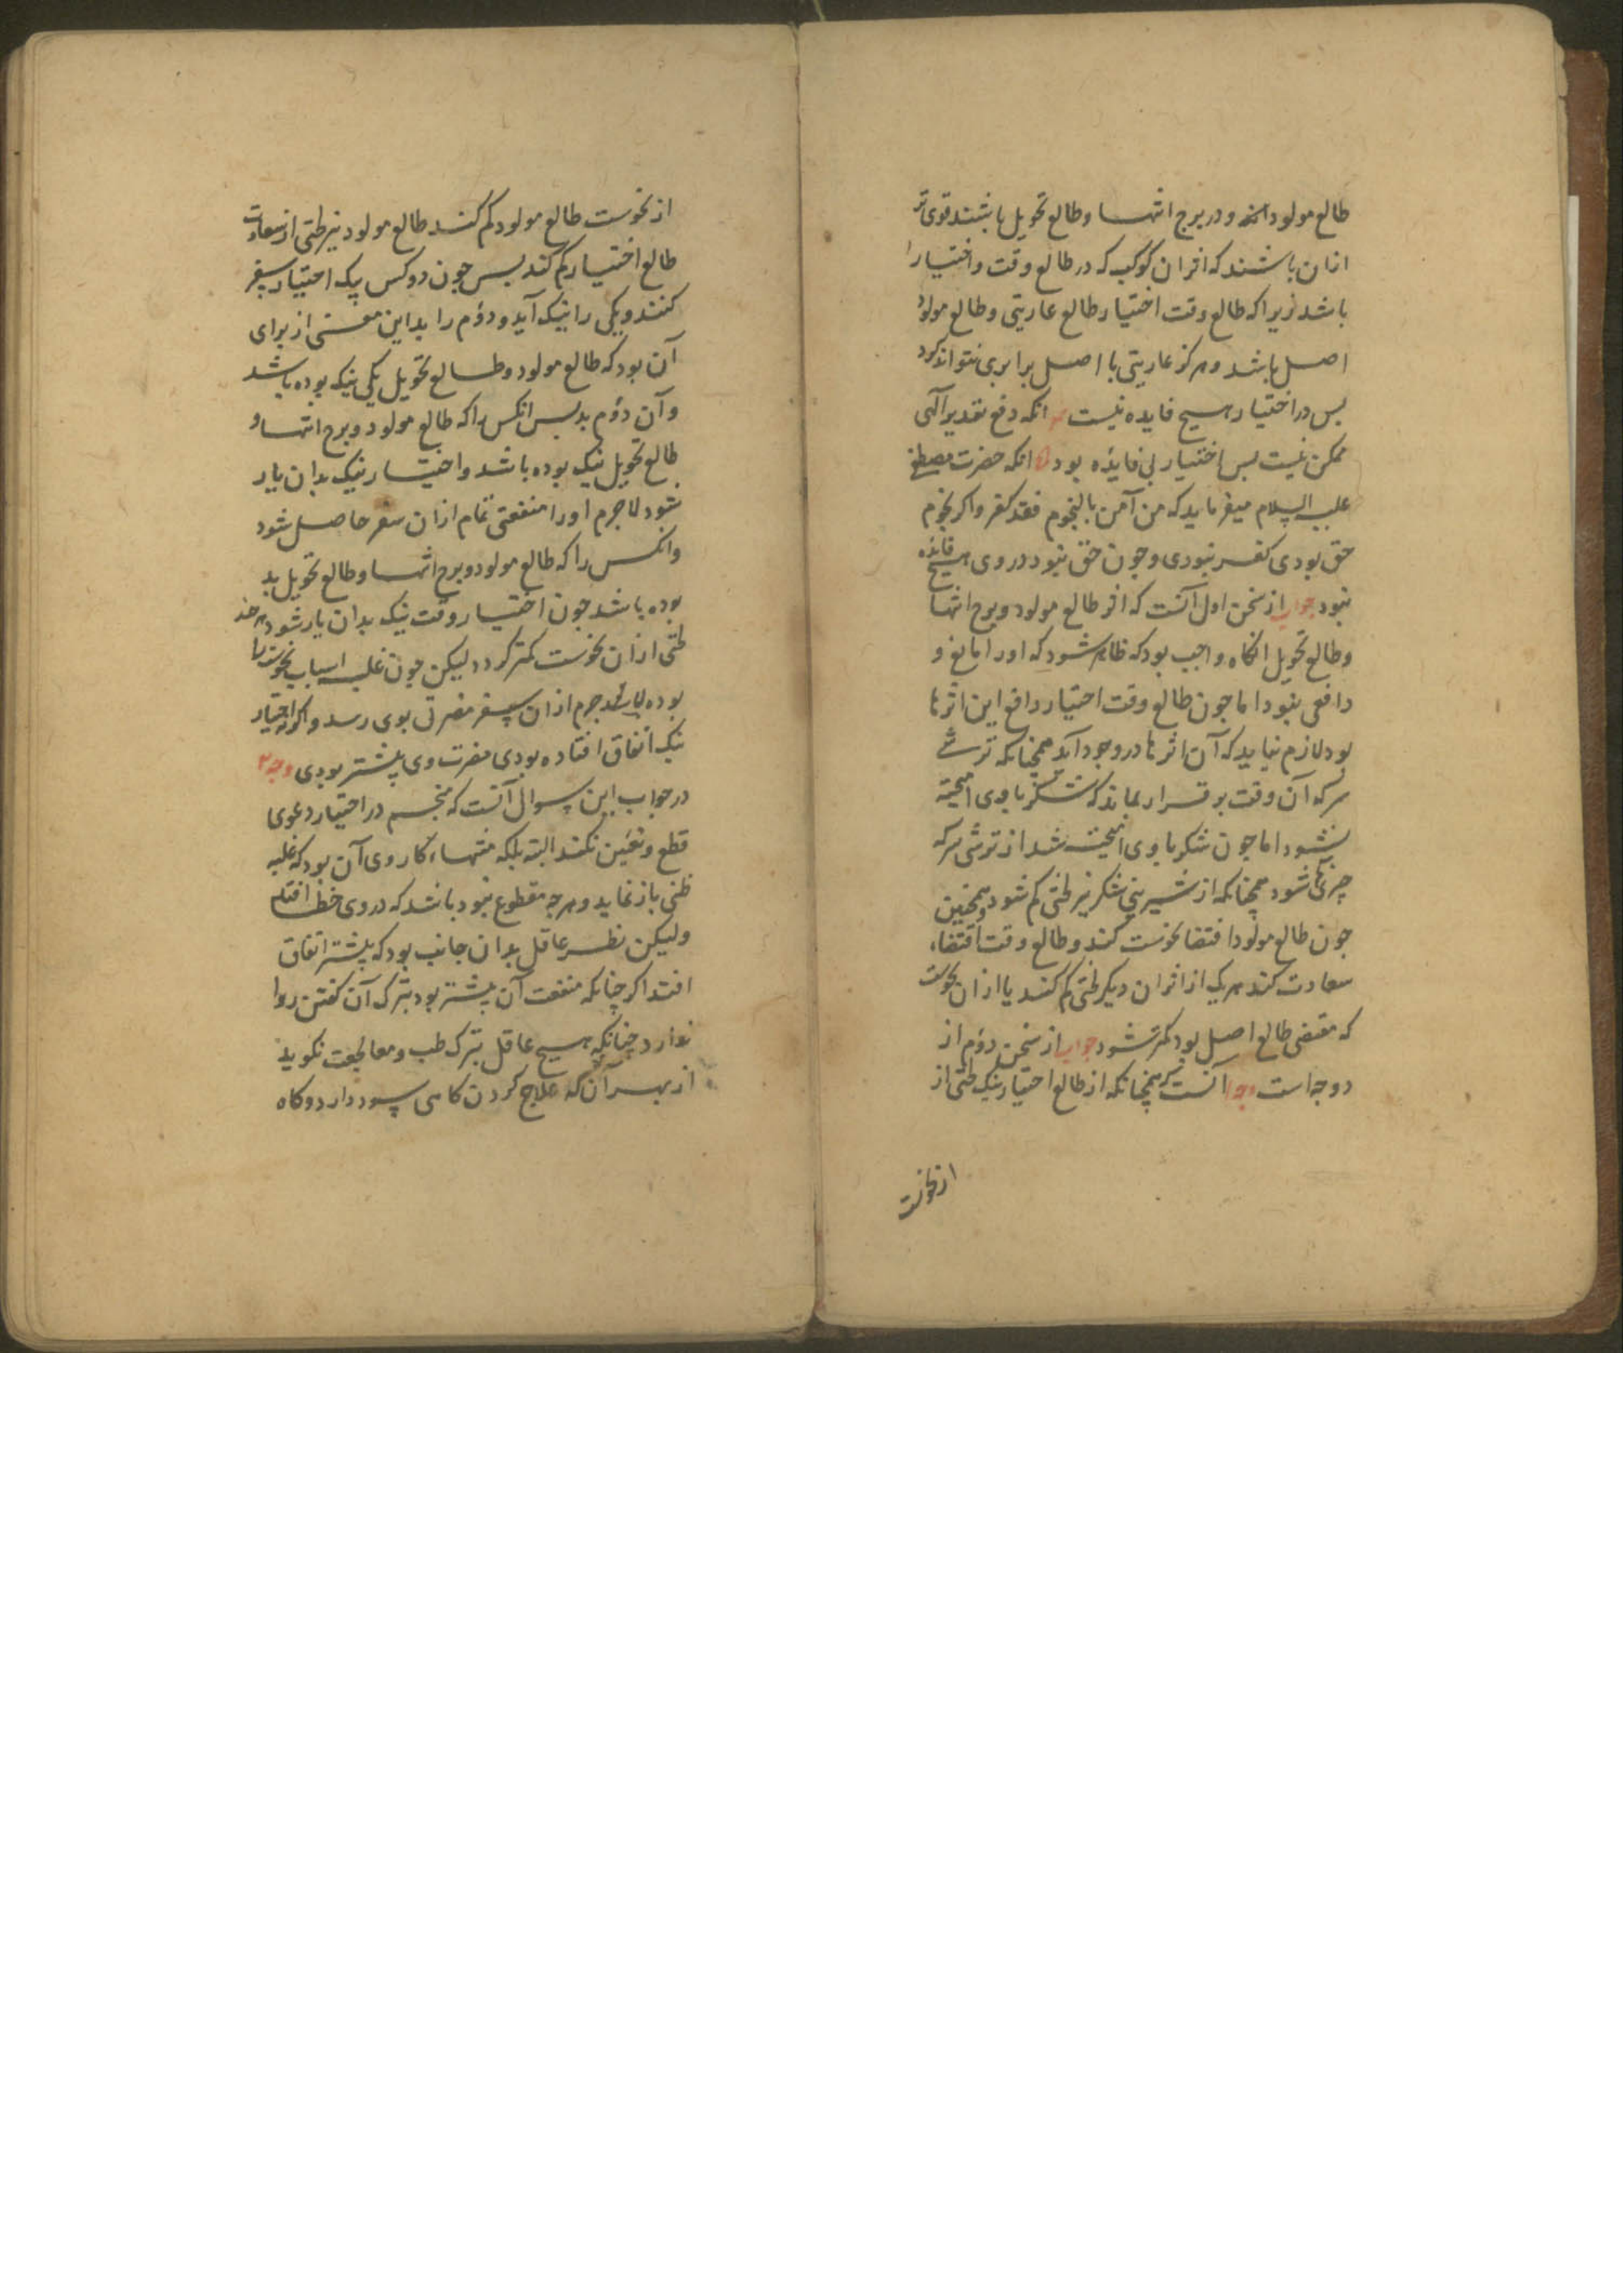 طالع مولود اند و در برج انتها و طالع تحویل باشند قوی تر
ازان باشند که اثر ان کوکب که در طالع وقت و اختیار
باشد زیرا که طالع وقت اختیار طالع عاریتی و طالع مولود
اصل باشد و هرکز عاریتی با اصل برابری نتواند کرد
بس در اختیار هیچ فایده نیست انکه دفع تقدیر الهی
ممکن نیست بس اختیار بی فایده بود انکه حضرت مصطفی
علیه السلام میفرماید که من آمن بالنجوم فقد کفر و اکر نجوم
حق بودی کفر نبودی و جون حق نبود در وی هیچ فایده
نبود جواب از سخن اول آنست که اثر طالع مولود و برج انتها
و طالع تحویل انکاه واجب بود که ظاهر شود که او را مانع و
دافعی نبود اما جون طالع وقت اختیار دافع این اثرها
بود لازم نیاید که آن اثرها در وجود آید همجنانکه ترشی
سرکه آن وقت برقرار بماند که شکر با وی امیخته
نشود اما جون شکر با وی امیخته شد از ترشی سرکه
جیزی کم شود همجنانکه از شیرینی شکر نیز لختی کم شود و همجنین
جون طالع مولود اقتضا نحوست کند و طالع وقت اقتضاء
سعادت کند هر یک از اثر ان دیکر لختی کم کند یا ازان نحوست
که مقتضی طالع اصل بود کمتر شود جواب از سخن دوم از
دو جه است وجه آنست که همچنانکه از طالع اختیار نیک لختی از
از نحوست
از نحوست طالع مولود کم کند طالع مولود نیز لختی از سعادت
طالع اختیار کم کند بس جون دو کس یک اختیار سفر
کنند و یکی را نیک آید و دوم را بد این معنی از برای
آن بود که طالع مولود و طالع تحویل یکی نیک بوده باشد
و آن دوم بد بس انکس را که طالع مولود و برج انتها و
طالع تحویل نیک بوده باشد و اختیار نیک بدان یار
شود لاجرم او را منفعتی تمام ازان سفر حاصل شود
و انکس را که طالع مولود و برج انتها و طالع تحویل بد
بوده باشد جون اختیار وقت نیک بدان یار شود هر جند
لختی ازان نحوست کمتر کردد لیکن جون غلبه اسباب نحوست را
بوده باشد لاجرم ازان سفر مضرتی بوی رسد و اکر نه اختیار
نیک اتفاق افتاده بودی مضرت وی بیشتر بودی وجه ۲
در جواب این سوال آنست که منجم در اختیار دعوی
قطع و تعین نکند البته بلکه منتهاء کار وی آن بود که غلبه
ظنی باز نماید و هر جه مقطوع نبود باشد که در وی خطا افتد
ولیکن نظر عاقل بدان جانب بود که بیشتر اتفاق
افتد اکر جنانکه منفعت آن بیشتر بود بترک آن کفتن روا
ندارد چنانکه هیچ عاقل بترک طب و معالجت نکوید
از بهر آن که علاج کردن کاهی سود دارد و کاه